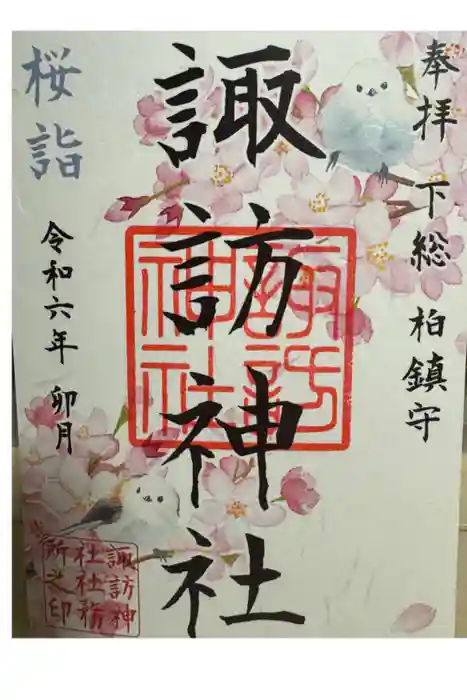 奉拝 下総 柏鎮守
諏訪神社
桜詣
令和六年 卯月
諏訪
神社
諏訪神
社社務
所之印